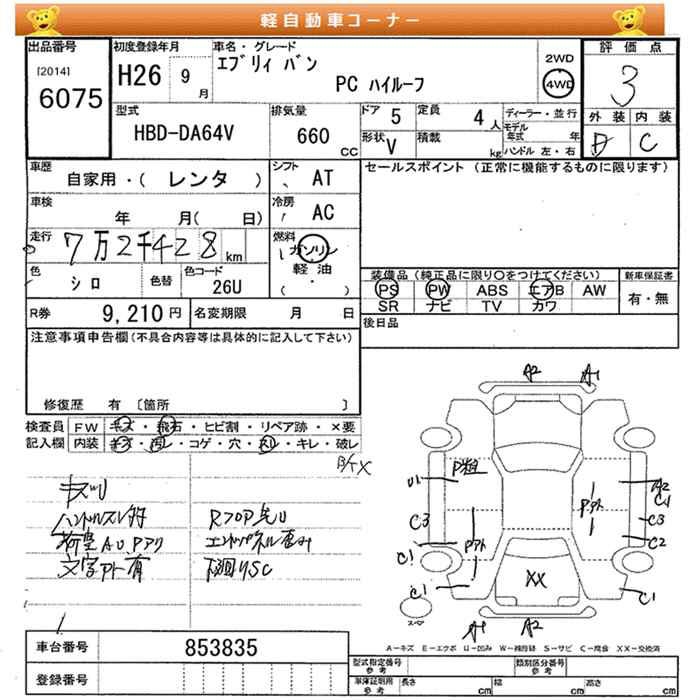 軽自動車コーナー
出品番号 初度登録年月 車名・グレード 評価点
[2014] 6075 H26 9月 エブリィ バン PC ハイルーフ 2WD 4WD 3
外装 内装
D C
型式 排気量 ドア 5 定員 4人 ディーラー・並行
HBD-DA64V 660 CC 形状 V 積載 kg モデル年式 年
ハンドル 左・右
車歴 シフト セールスポイント (正常に機能するものに限ります)
自家用・( レンタ ) AT
車検 冷房
年 月( 日) AC
走行 7万2千428km 燃料 ガソリン 軽油・( )
色 シロ 色替 色コード 26U
装備品 (純正品に限り○をつけてください) 新車保証書
PS PW ABS エアB AW 有・無
SR ナビ TV カワ
R券 9,210円 名変期限 月 日 後日品
注意事項申告欄(不具合内容等は具体的に記入して下さい)
修復歴 有 〔箇所 〕
検査員 FW キズ・飛石・ヒビ割・リペア跡・×要
記入欄 内装 キズ・汚レ・コゲ・穴・スレ・キレ・破レ
ハンドルスレ
文字 有
A2 A1
U1 A2
C1
C3 C3
C2
C1
XX
C1 C1
スペア
A1 A2
A-キズ E-エクボ U-凹み W-補修跡 S-サビ C-腐食 XX-交換済
車台番号 853835
登録番号
型式指定番号 参考 類別区分番号 参考
車庫証明用 参考 長さ cm 幅 cm 高さ cm